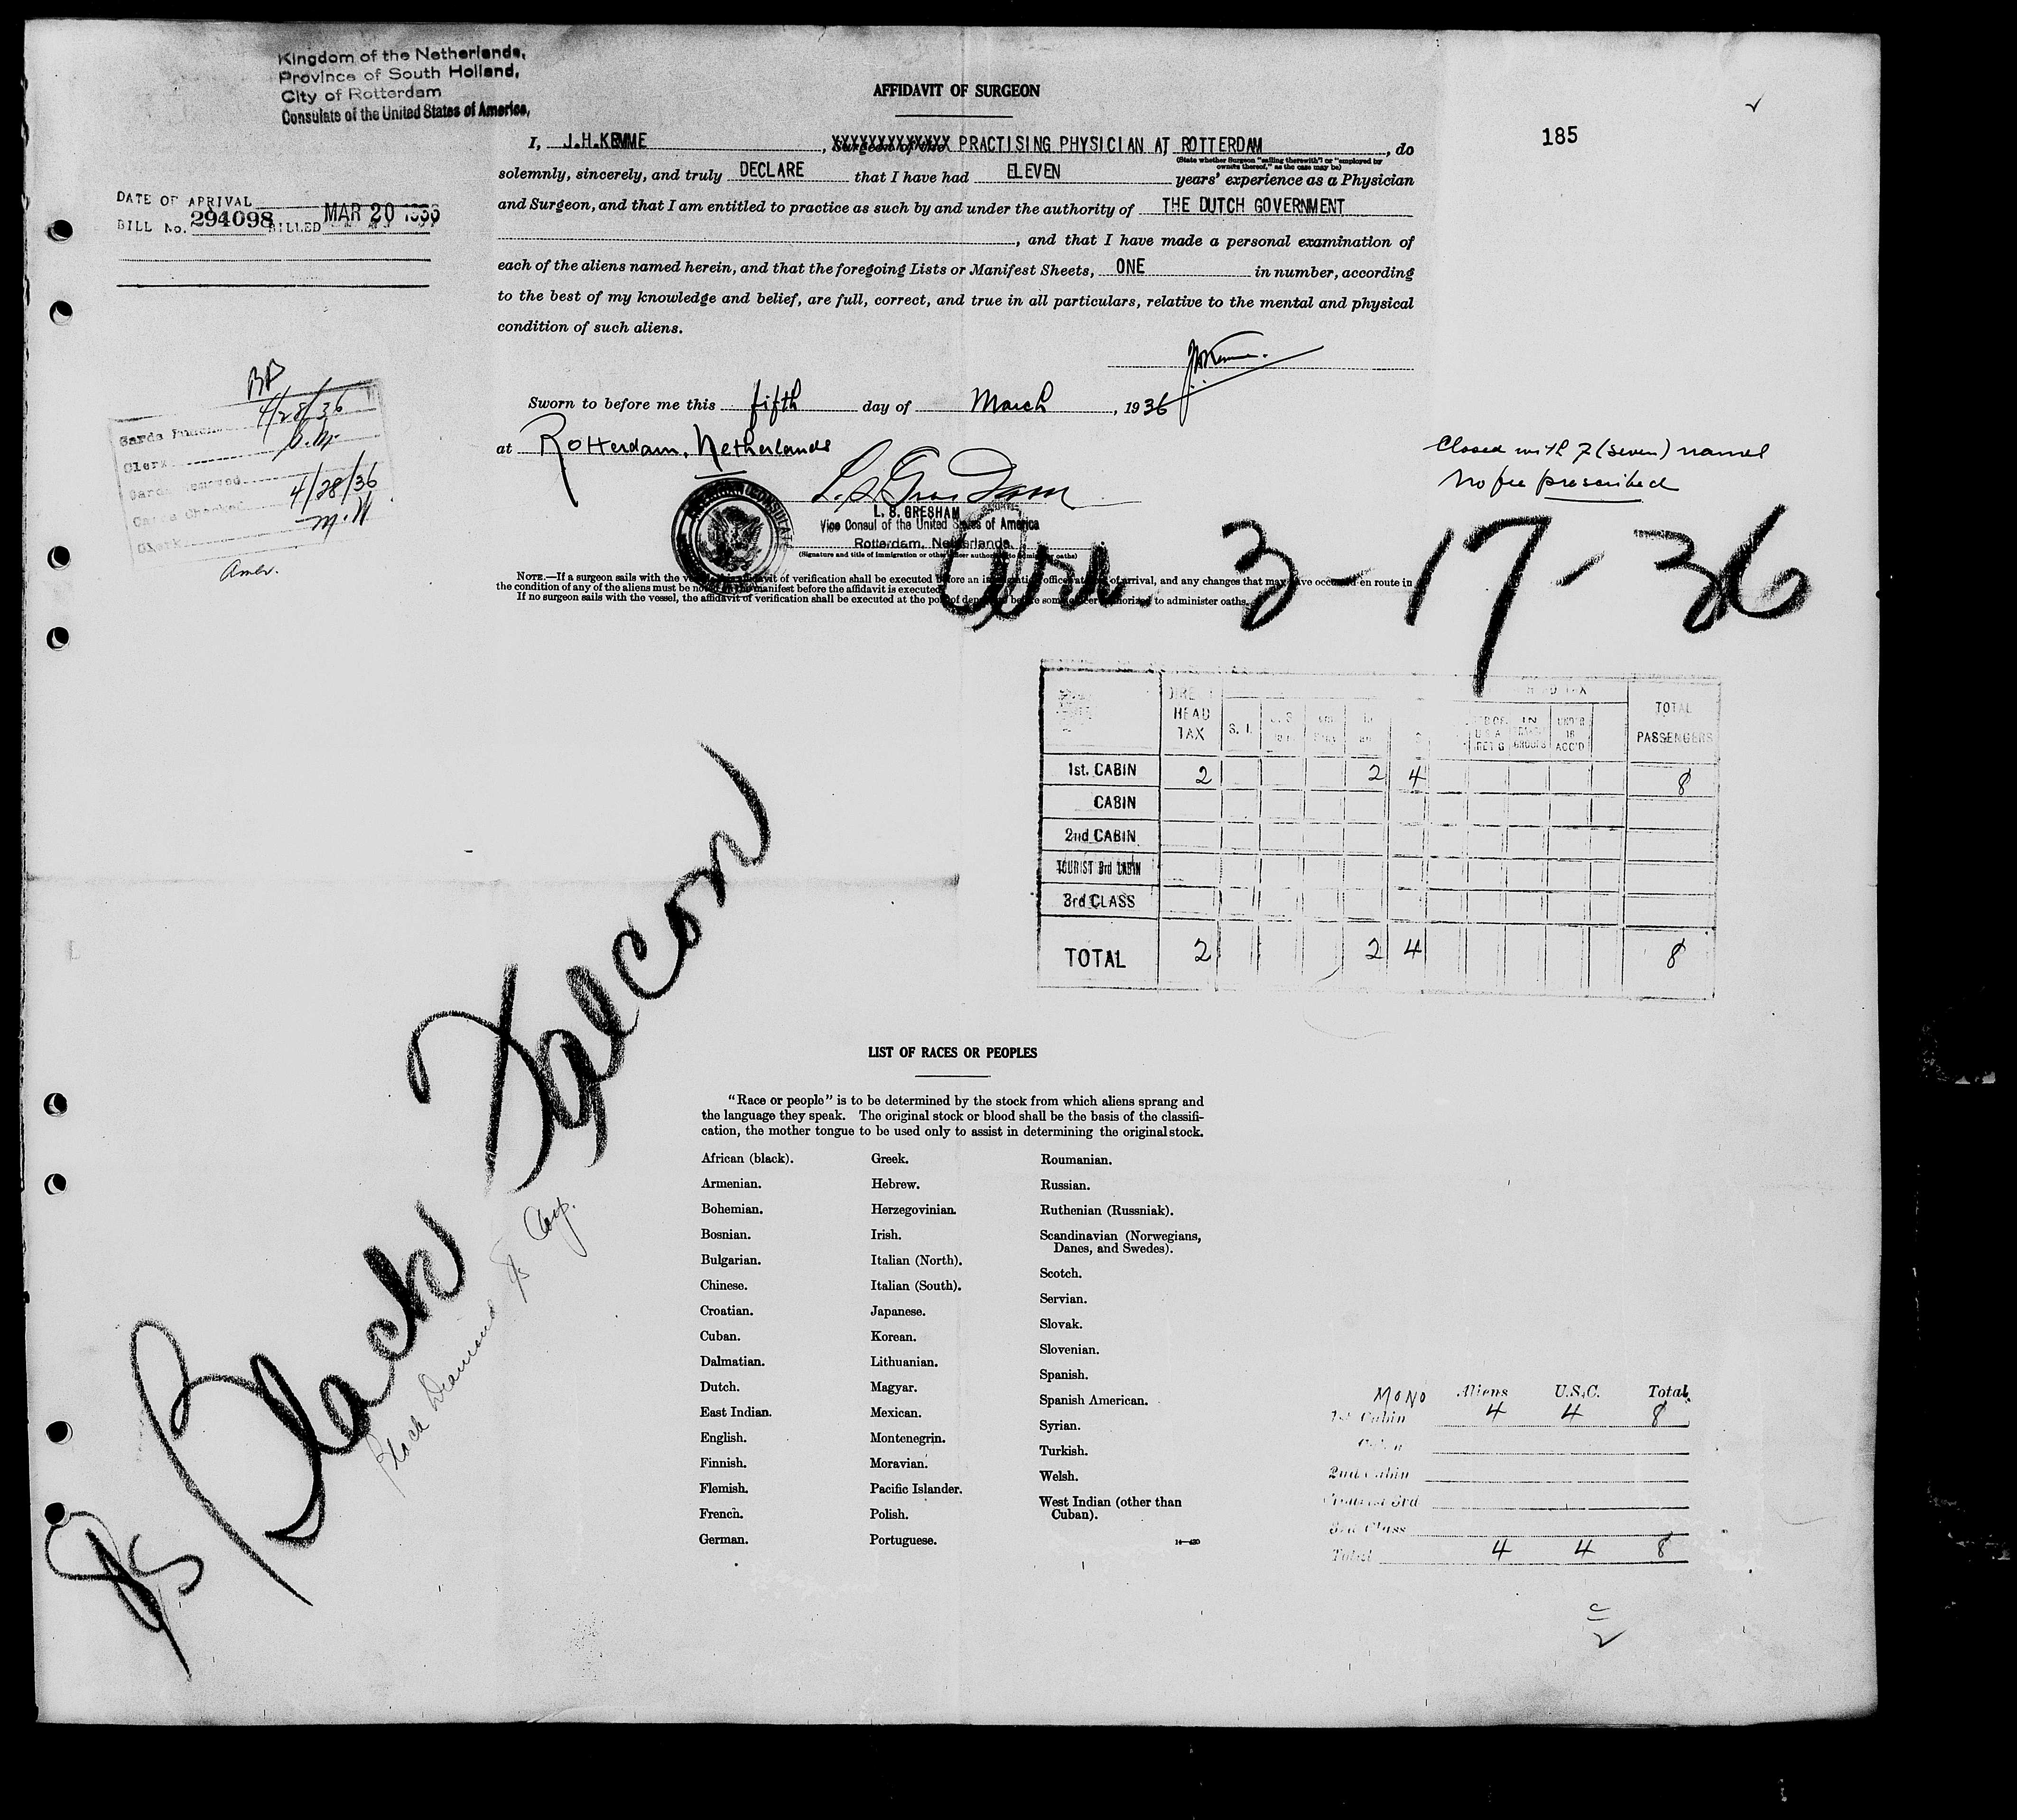 Kingdom of the Netherlands,
Province of South Holland,
City of Rotterdam
Consulate of the United States of America,
AFFIDAVIT OF SURGEON
185
I, J.H.KEMME, Surgeon of the XXXXXXXXXXXXX PRACTISING PHYSICIAN AT ROTTERDAM, do
(State whether Surgeon "sailing therewith" or "employed by owners thereof," as the case may be)
solemnly, sincerely, and truly DECLARE that I have had ELEVEN years' experience as a Physician
and Surgeon, and that I am entitled to practice as such by and under the authority of THE DUTCH GOVERNMENT
, and that I have made a personal examination of
each of the aliens named herein, and that the foregoing Lists or Manifest Sheets, ONE in number, according
to the best of my knowledge and belief, are full, correct, and true in all particulars, relative to the mental and physical
condition of such aliens.
DATE OF ARRIVAL
BILL No. 294098 BILLED MAR 20 1936
J.H.Kemme.
Sworn to before me this fifth day of March, 1936
at Rotterdam, Netherlands
BP
Cards Punch 4/28/36
Clerk B.M.
Cards removed
Cards Checked 4/28/36
Clerk M.N
Amer.
Closed with 7 (seven) names
No fee prescribed
AMERICAN CONSULATE
L. S. GRESHAM
Vice Consul of the United States of America
Rotterdam, Netherlands.
(Signature and title of immigration or other officer authorized to administer oaths)
Arr. 3-17-36
NOTE.—If a surgeon sails with the vessel, this affidavit of verification shall be executed before an immigration officer at port of arrival, and any changes that may have occurred en route in
the condition of any of the aliens must be noted on the manifest before the affidavit is executed.
If no surgeon sails with the vessel, the affidavit of verification shall be executed at the port of departure before some officer authorized to administer oaths.
DIRECT HEAD TAX S. I. HEAD TAX TOTAL PASSENGERS
IN UNDER 16 ACC'D
1st. CABIN 2 2 4 8
CABIN
2nd CABIN
TOURIST 3rd CABIN
3rd CLASS
TOTAL 2 2 4 8
SS Black Falcon
Black Diamond SS Corp.
LIST OF RACES OR PEOPLES
"Race or people" is to be determined by the stock from which aliens sprang and
the language they speak. The original stock or blood shall be the basis of the classifi-
cation, the mother tongue to be used only to assist in determining the original stock.
African (black).
Armenian.
Bohemian.
Bosnian.
Bulgarian.
Chinese.
Croatian.
Cuban.
Dalmatian.
Dutch.
East Indian.
English.
Finnish.
Flemish.
French.
German.
Greek.
Hebrew.
Herzegovinian.
Irish.
Italian (North).
Italian (South).
Japanese.
Korean.
Lithuanian.
Magyar.
Mexican.
Montenegrin.
Moravian.
Pacific Islander.
Polish.
Portuguese.
Roumanian.
Russian.
Ruthenian (Russniak).
Scandinavian (Norwegians,
Danes, and Swedes).
Scotch.
Servian.
Slovak.
Slovenian.
Spanish.
Spanish American.
Syrian.
Turkish.
Welsh.
West Indian (other than
Cuban).
14—430
MONO Aliens U.S.C. Total
1st Cabin 4 4 8
Cabin
2nd Cabin
Tourist 3rd
3rd Class
Total 4 4 8